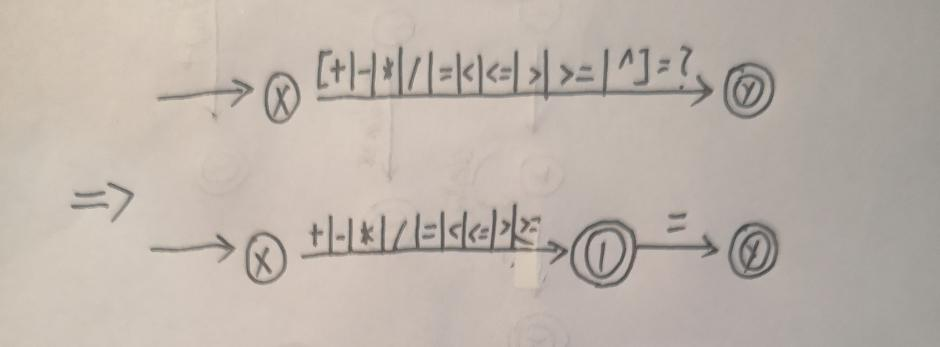 X [+|-|*|/|=|<|<=|>|>=|^]=? Y
=> X +|-|*|/|=|<|<=|>|>= 1 = Y